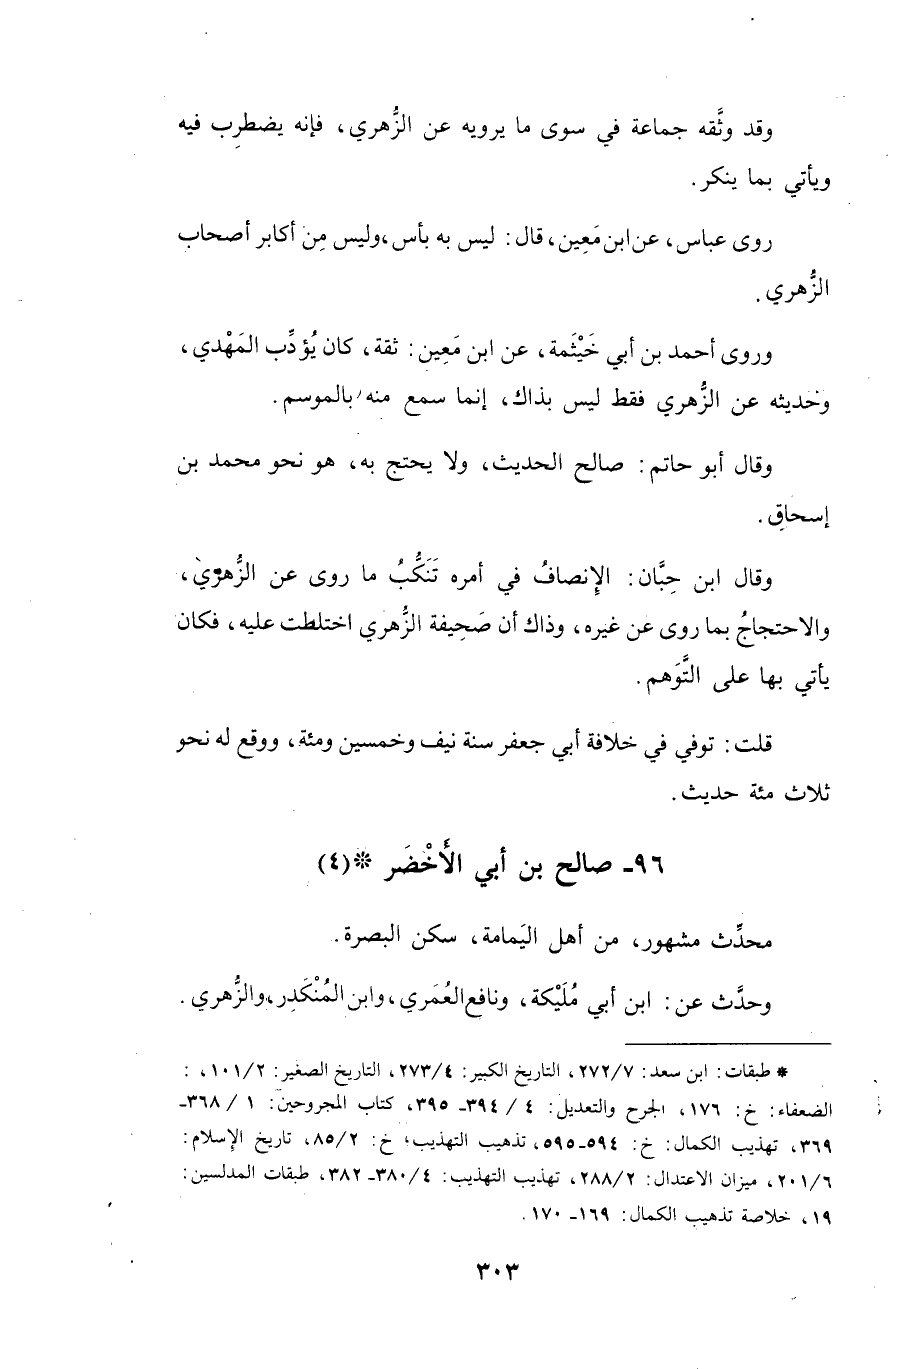 وقد وثَّقه جماعة في سوى ما يرويه عن الزُّهري، فإنه يضطرِب فيه
ويأتي بما ينكر.
روى عباس، عن ابن مَعِين، قال: ليس به بأس، وليس مِن أكابر أصحاب
الزُّهري.
وروى أحمد بن أبي خَيْثَمة، عن ابن مَعِين: ثقة، كان يُؤدِّب المَهْدي،
وحديثه عن الزُّهري فقط ليس بذاك، إنما سمع منه بالموسم.
وقال أبو حاتم: صالح الحديث، ولا يحتج به، هو نحو محمد بن
إسحاق.
وقال ابن حِبَّان: الإِنصافُ في أمره تَنَكُّبُ ما روى عن الزُّهري،
والاحتجاجُ بما روى عن غيره، وذاك أن صَحِيفة الزُّهري اختلطت عليه، فكان
يأتي بها على التَّوَهم.
قلت: توفي في خلافة أبي جعفر سنة نيف وخمسين ومئة، ووقع له نحو
ثلاث مئة حديث.
٩٦- صالح بن أبي الأَخْضَر *(٤)
محدِّث مشهور، من أهل اليَمامة، سكن البصرة.
وحدَّث عن: ابن أبي مُلَيْكة، ونافع العُمَري، وابن المُنْكَدِر، والزُّهري.
* طبقات: ابن سعد: ٢٧٢/٧، التاريخ الكبير: ٢٧٣/٤، التاريخ الصغير: ١٠١/٢، :
الضعفاء: خ: ١٧٦، الجرح والتعديل: ٤ / ٣٩٤- ٣٩٥، كتاب المجروحين: ١ / ٣٦٨-
٣٦٩، تهذيب الكمال: خ: ٥٩٤-٥٩٥، تذهيب التهذيب؛ خ: ٨٥/٢، تاريخ الإِسلام:
٢٠١/٦، ميزان الاعتدال: ٢٨٨/٢، تهذيب التهذيب: ٣٨٠/٤-٣٨٢، طبقات المدلسين:
١٩، خلاصة تذهيب الكمال: ١٦٩- ١٧٠.
٣٠٣